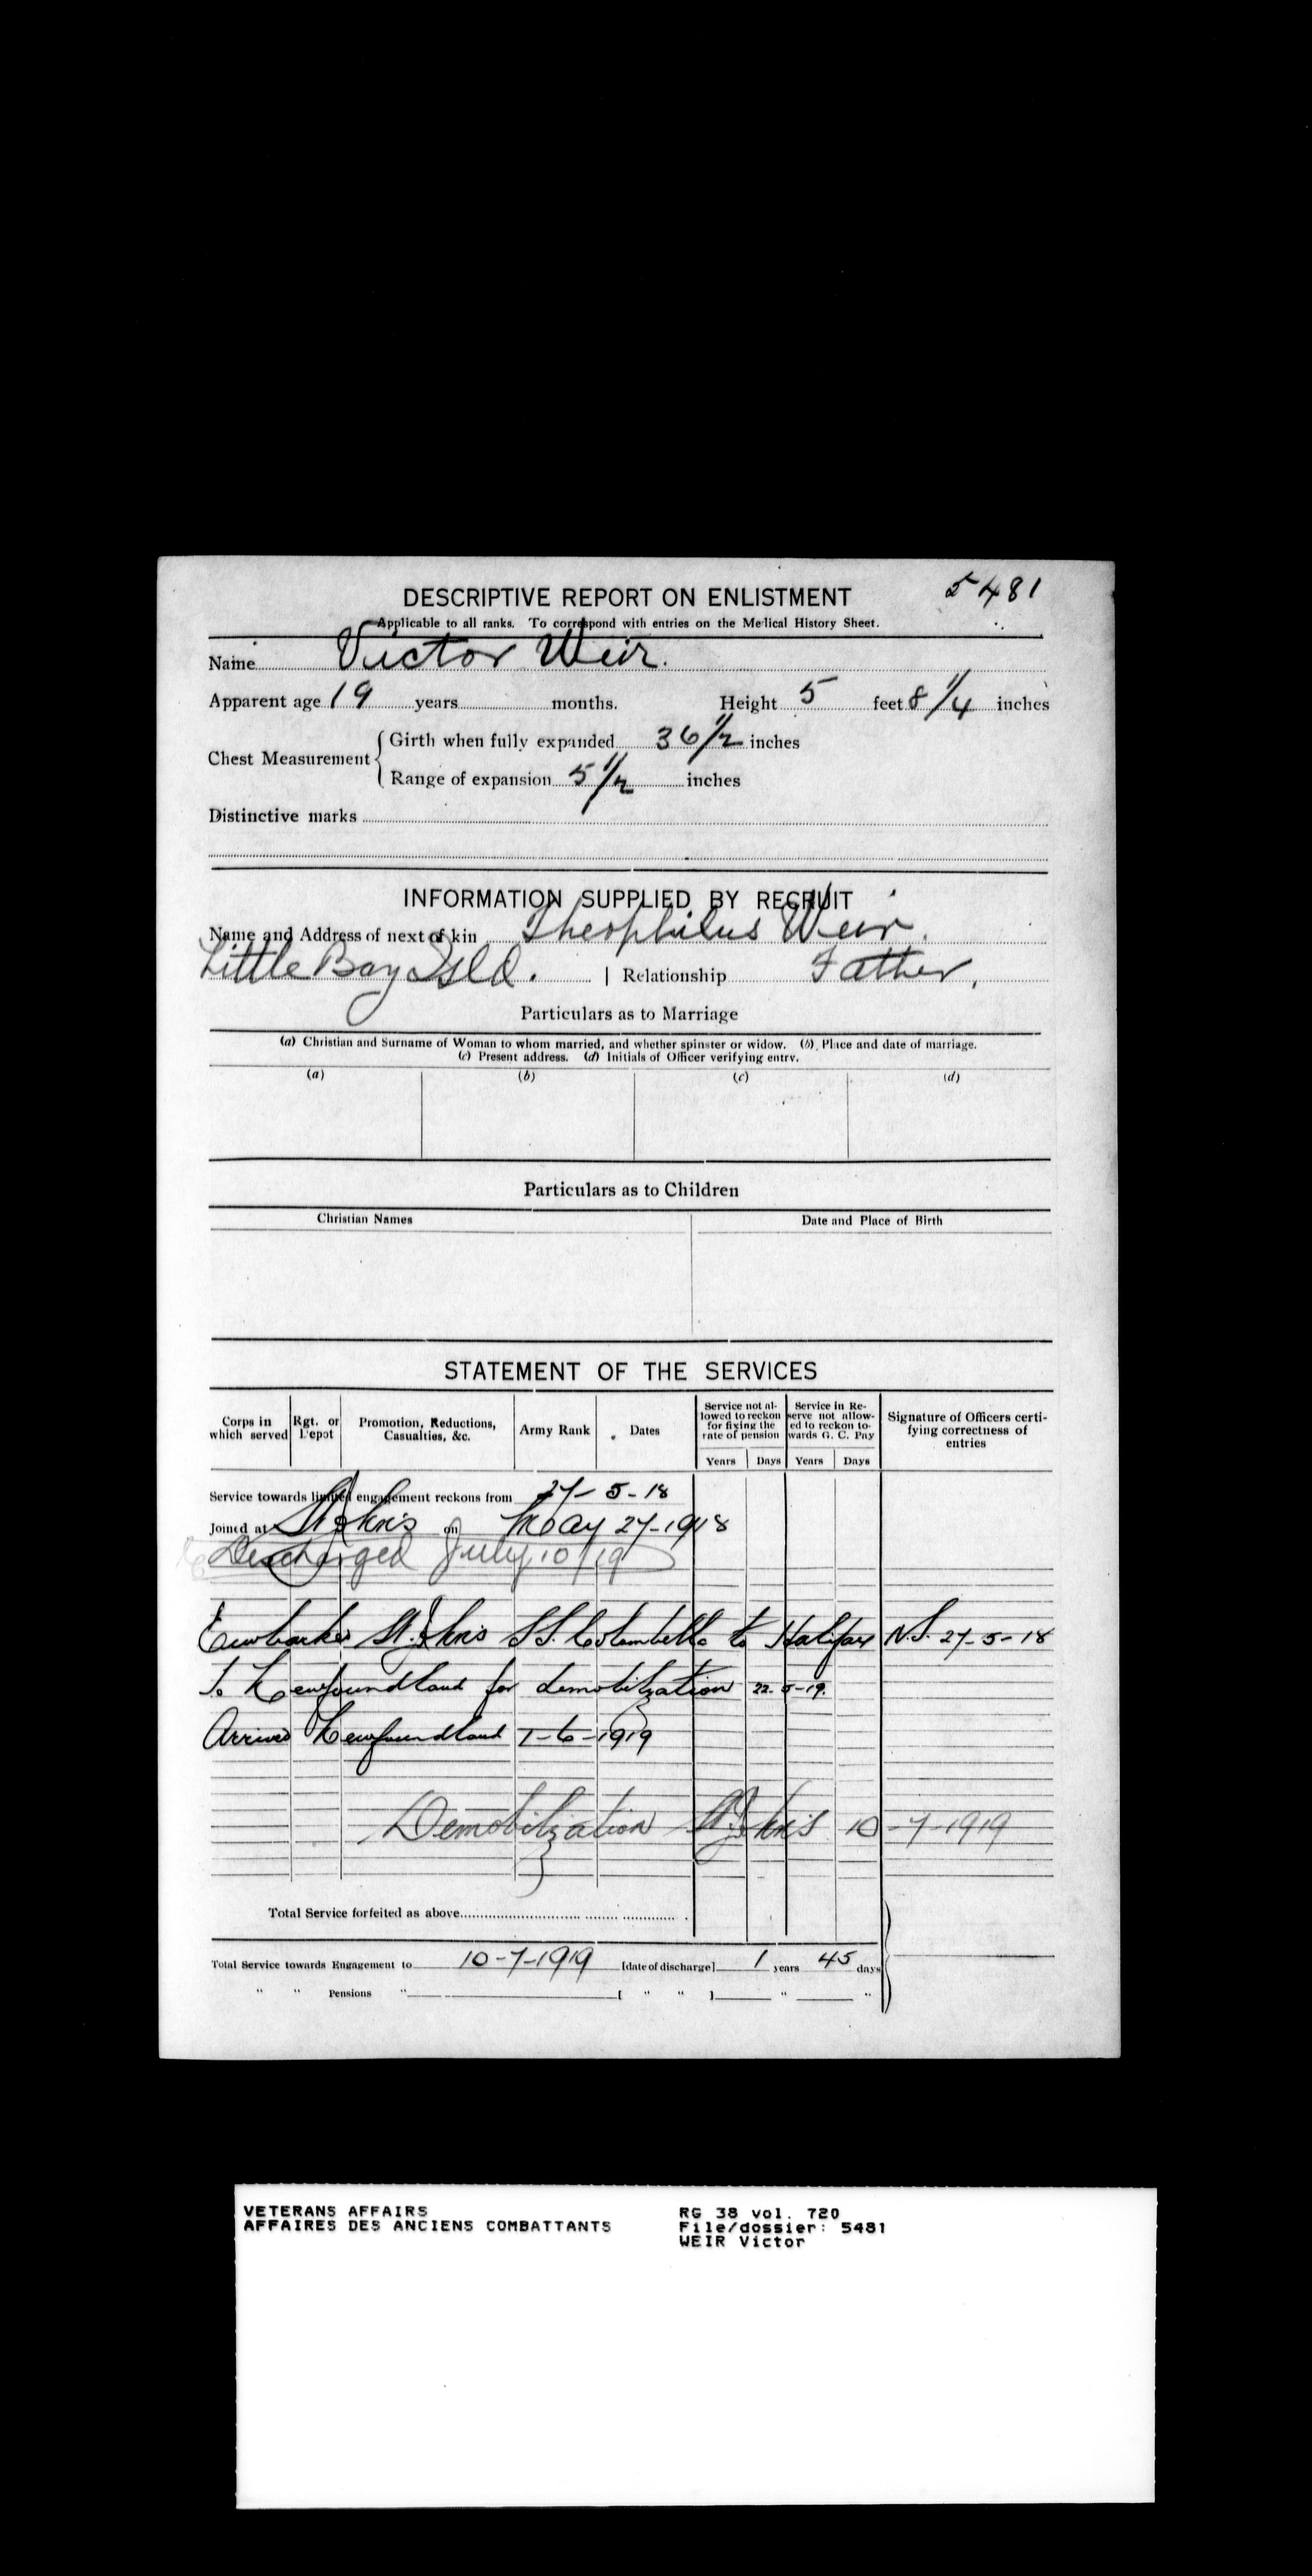 5481
DESCRIPTIVE REPORT ON ENLISTMENT
Applicable to all ranks. To correspond with entries on the Medical History Sheet.
Name Victor Weir.
Apparent age 19 years months. Height 5 feet 8 1/4 inches
Chest Measurement { Girth when fully expanded 36 1/2 inches
Range of expansion 5 1/2 inches
Distinctive marks
INFORMATION SUPPLIED BY RECRUIT
Name and Address of next of kin Theophilus Weir.
Little Bay Isld. | Relationship Father.
Particulars as to Marriage
(a) Christian and Surname of Woman to whom married, and whether spinster or widow. (b) Place and date of marriage.
(c) Present address. (d) Initials of Officer verifying entry.
(a) (b) (c) (d)
Particulars as to Children
Christian Names Date and Place of Birth
STATEMENT OF THE SERVICES
Corps in which served Rgt. or Depot Promotion, Reductions, Casualties, &c. Army Rank Dates Service not allowed to reckon for fixing the rate of pension Service in Reserve not allowed to reckon towards G. C. Pay Signature of Officers certifying correctness of entries
Years Days Years Days
Service towards limited engagement reckons from 27-5-18
Joined at St Johns on May 27-1918
Discharged July 10/19
Embarked St. Johns S.S. Columbella to Halifax N.S. 27-5-18
To Newfoundland for demobilization 22-5-19.
Arrived Newfoundland 1-6-1919
Demobilization St Johns 10-7-1919
Total Service forfeited as above
Total Service towards Engagement to 10-7-1919 [date of discharge] 1 years 45 days
" " Pensions " [ " " ] " "
VETERANS AFFAIRS RG 38 vol. 720
AFFAIRES DES ANCIENS COMBATTANTS File/dossier: 5481
WEIR Victor